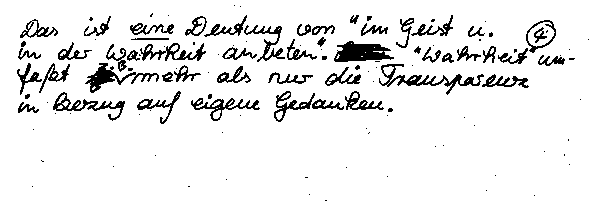 Das ist eine Deutung von "im Geist u. ④
in der Wahrheit anbeten". "Wahrheit" um-
faßt mehr als nur die Transparenz
in Bezug auf eigene Gedanken.